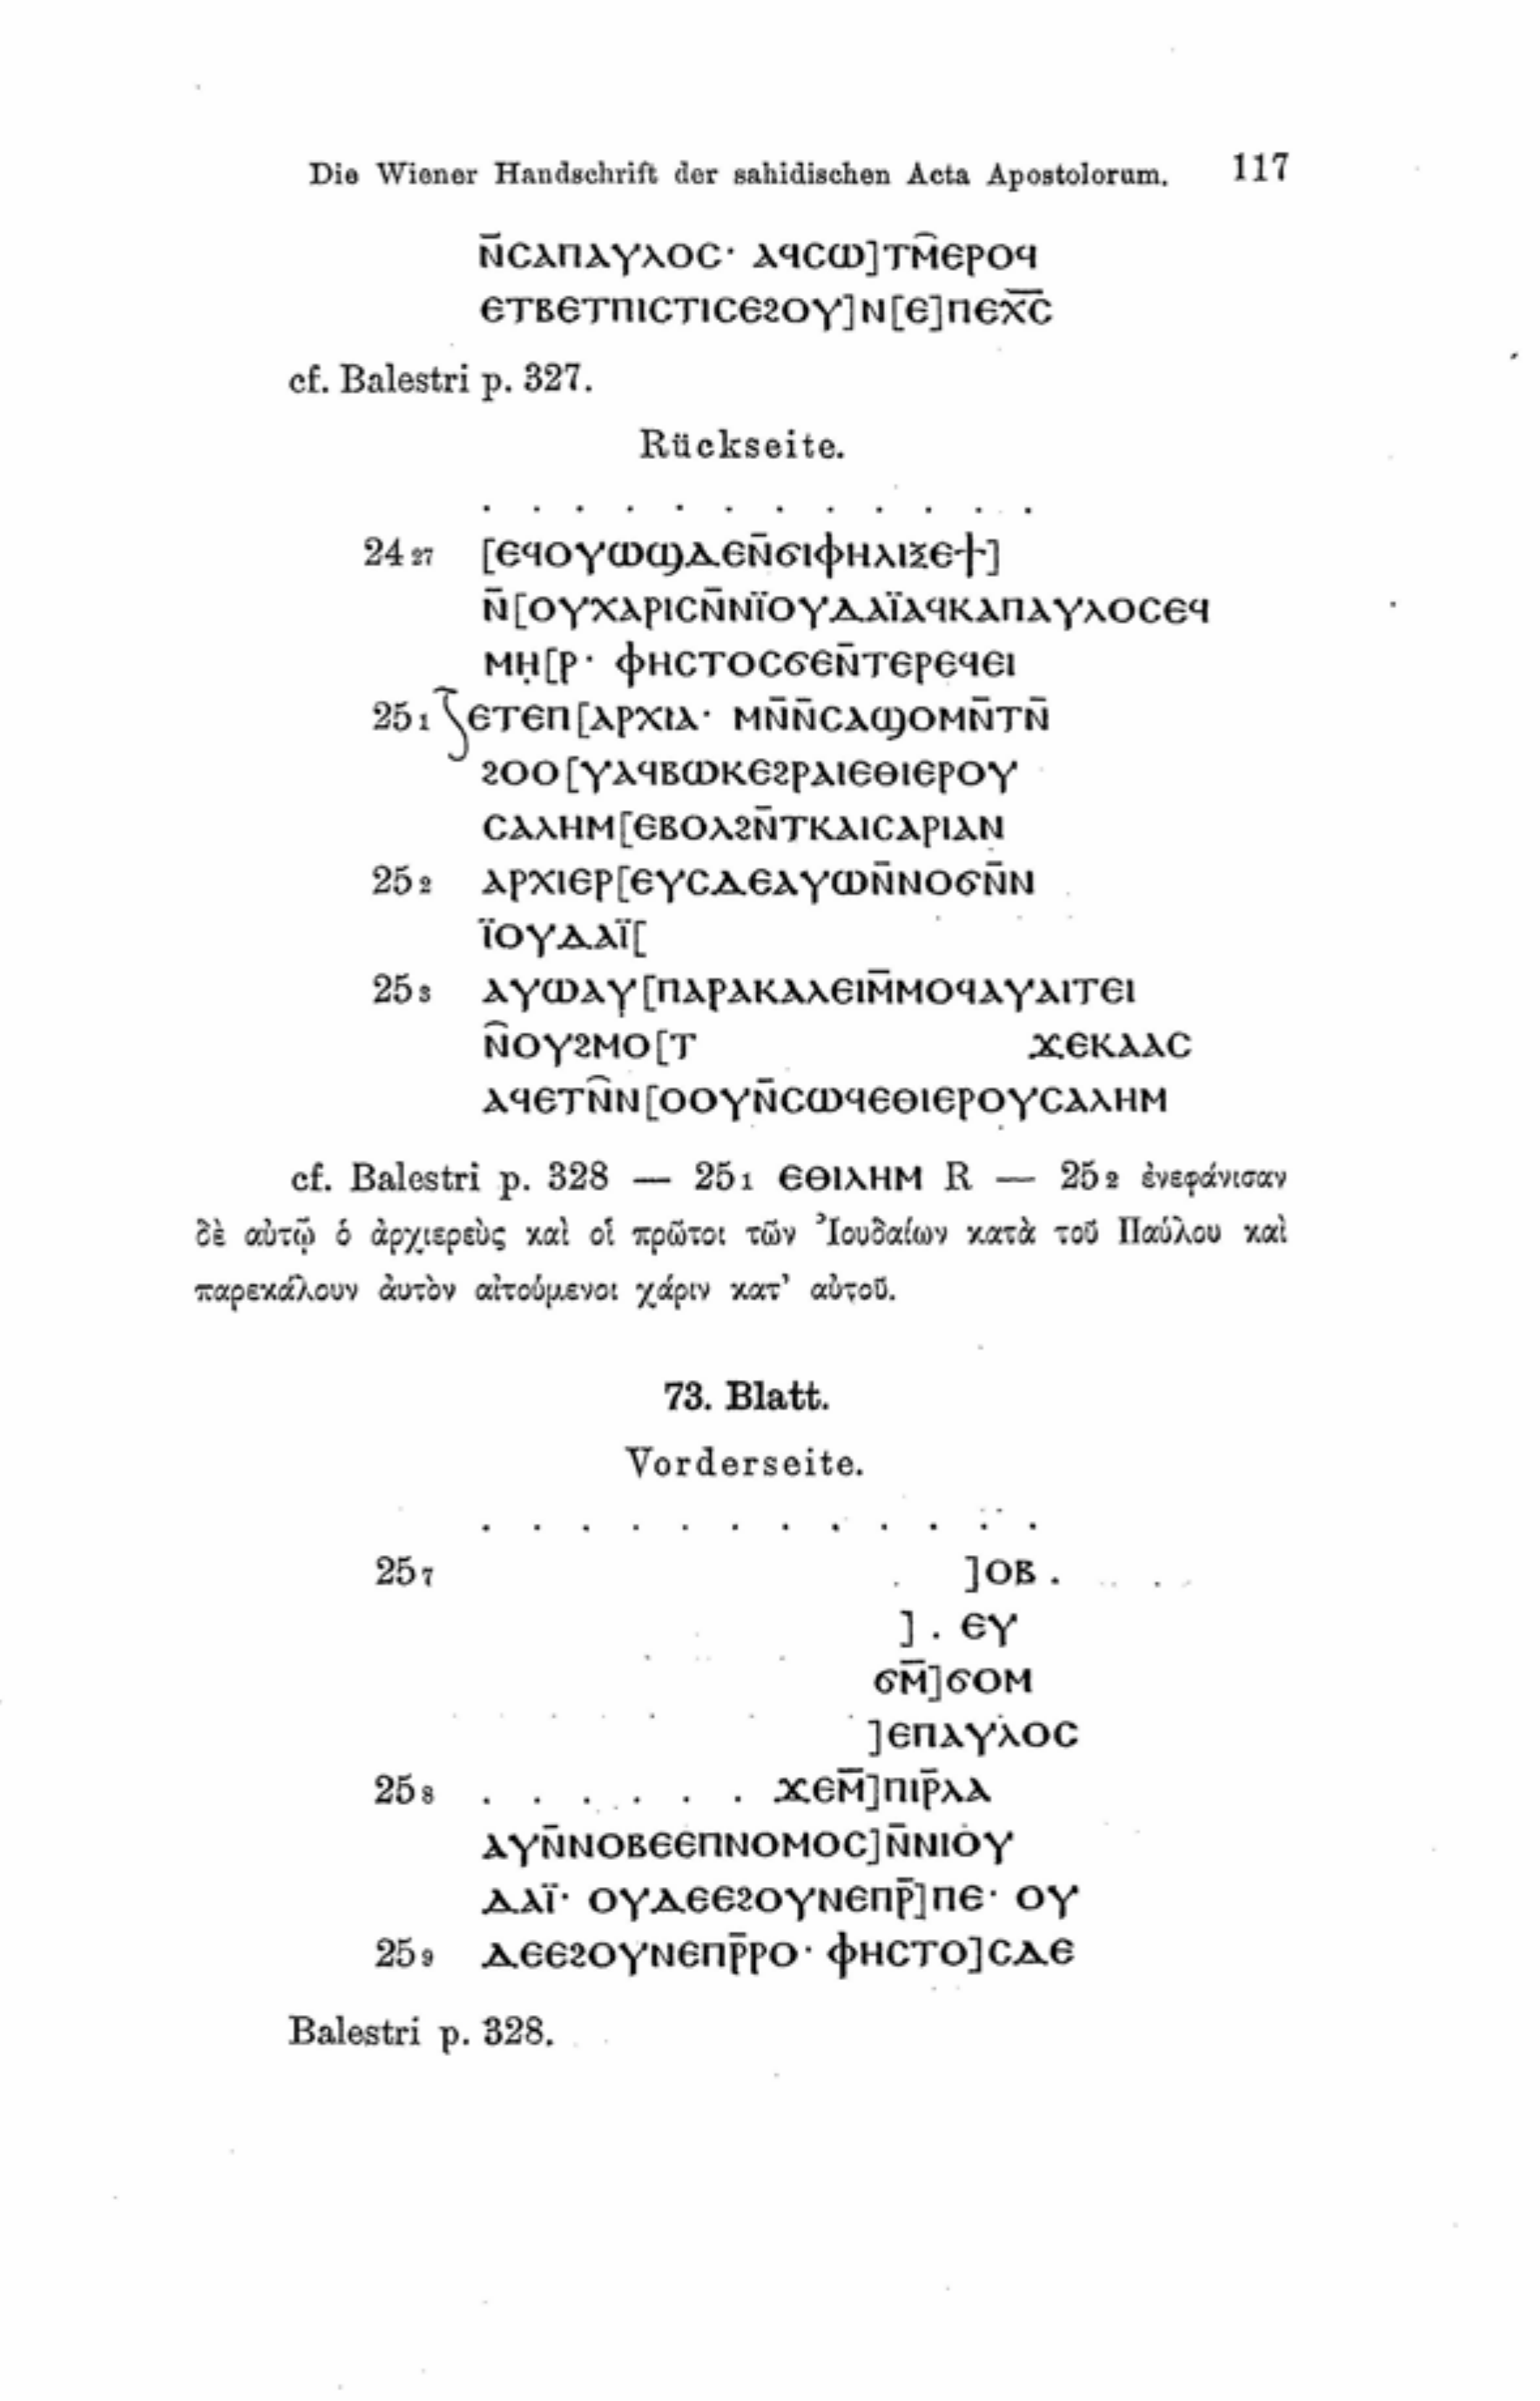 Die Wiener Handschrift der sahidischen Acta Apostolorum. 117
ⲛ̄ⲥⲁⲡⲁⲩⲗⲟⲥ· ⲁϥⲥⲱ]ⲧⲙ̑ⲉⲣⲟϥ
ⲉⲧⲃⲉⲧⲡⲓⲥⲧⲓⲥⲉϩⲟⲩ]ⲛ[ⲉ]ⲡⲉⲭ̅ⲥ̅
cf. Balestri p. 327.
Rückseite.
. . . . . . . . . . . .
24 27 [ⲉϥⲟⲩⲱϣⲇⲉⲛ̄ϭⲓⲫⲏⲗⲓⲝⲉϯ]
ⲛ̄[ⲟⲩⲭⲁⲣⲓⲥⲛ̄ⲛⲓ̈ⲟⲩⲇⲁⲓ̈ⲁϥⲕⲁⲡⲁⲩⲗⲟⲥⲉϥ
ⲙⲏ̣[ⲣ· ⲫⲏⲥⲧⲟⲥϭⲉⲛ̄ⲧⲉⲣⲉϥⲉⲓ
25 1 ⲉⲧⲉⲡ[ⲁⲣⲭⲓⲁ· ⲙⲛ̄ⲛ̄ⲥⲁϣⲟⲙⲛ̄ⲧⲛ̄
ϩⲟⲟ[ⲩⲁϥⲃⲱⲕⲉϩⲣⲁⲓⲉⲑⲓⲉⲣⲟⲩ
ⲥⲁⲗⲏⲙ[ⲉⲃⲟⲗϩⲛ̄ⲧⲕⲁⲓⲥⲁⲣⲓⲁⲛ
25 2 ⲁⲣⲭⲓⲉⲣ[ⲉⲩⲥⲇⲉⲁⲩⲱⲛ̄ⲛⲟϭⲛ̄ⲛ
ⲓ̈ⲟⲩⲇⲁⲓ̈[
25 3 ⲁⲩⲱⲁⲩ̣[ⲡⲁⲣⲁⲕⲁⲗⲉⲓⲙ̄ⲙⲟϥⲁⲩⲁⲓⲧⲉⲓ
ⲛ̑ⲟⲩϩⲙⲟ[ⲧ ϫⲉⲕⲁⲁⲥ
ⲁϥⲉⲧⲛ̑ⲛ[ⲟⲟⲩⲛ̄ⲥⲱϥⲉⲑⲓⲉⲣⲟⲩⲥⲁⲗⲏⲙ
cf. Balestri p. 328 — 25 1 ⲉⲑⲓⲗⲏⲙ R — 25 2 ἐνεφάνισαν
δὲ αὐτῷ ὁ ἀρχιερεὺς καὶ οἱ πρῶτοι τῶν Ἰουδαίων κατὰ τοῦ Παύλου καὶ
παρεκάλουν ἀυτὸν αἰτούμενοι χάριν κατ’ αὐτοῦ.
73. Blatt.
Vorderseite.
. . . . . . . . . . . .
25 7 ]ⲟⲃ .
] . ⲉⲩ
ϭⲙ̄]ϭⲟⲙ
]ⲉⲡⲁⲩⲗⲟⲥ
25 8 . . . . . . ϫⲉⲙ̄]ⲡⲓⲣ̄ⲗⲁ
ⲁⲩⲛ̄ⲛⲟⲃⲉⲉⲡⲛⲟⲙⲟⲥ]ⲛ̄ⲛⲓⲟⲩ
ⲇⲁⲓ̈· ⲟⲩⲇⲉⲉϩⲟⲩⲛⲉⲡⲣ̄]ⲡⲉ· ⲟⲩ
25 9 ⲇⲉⲉϩⲟⲩⲛⲉⲡⲣ̄ⲣⲟ· ⲫⲏⲥⲧⲟ]ⲥⲇⲉ
Balestri p. 328.